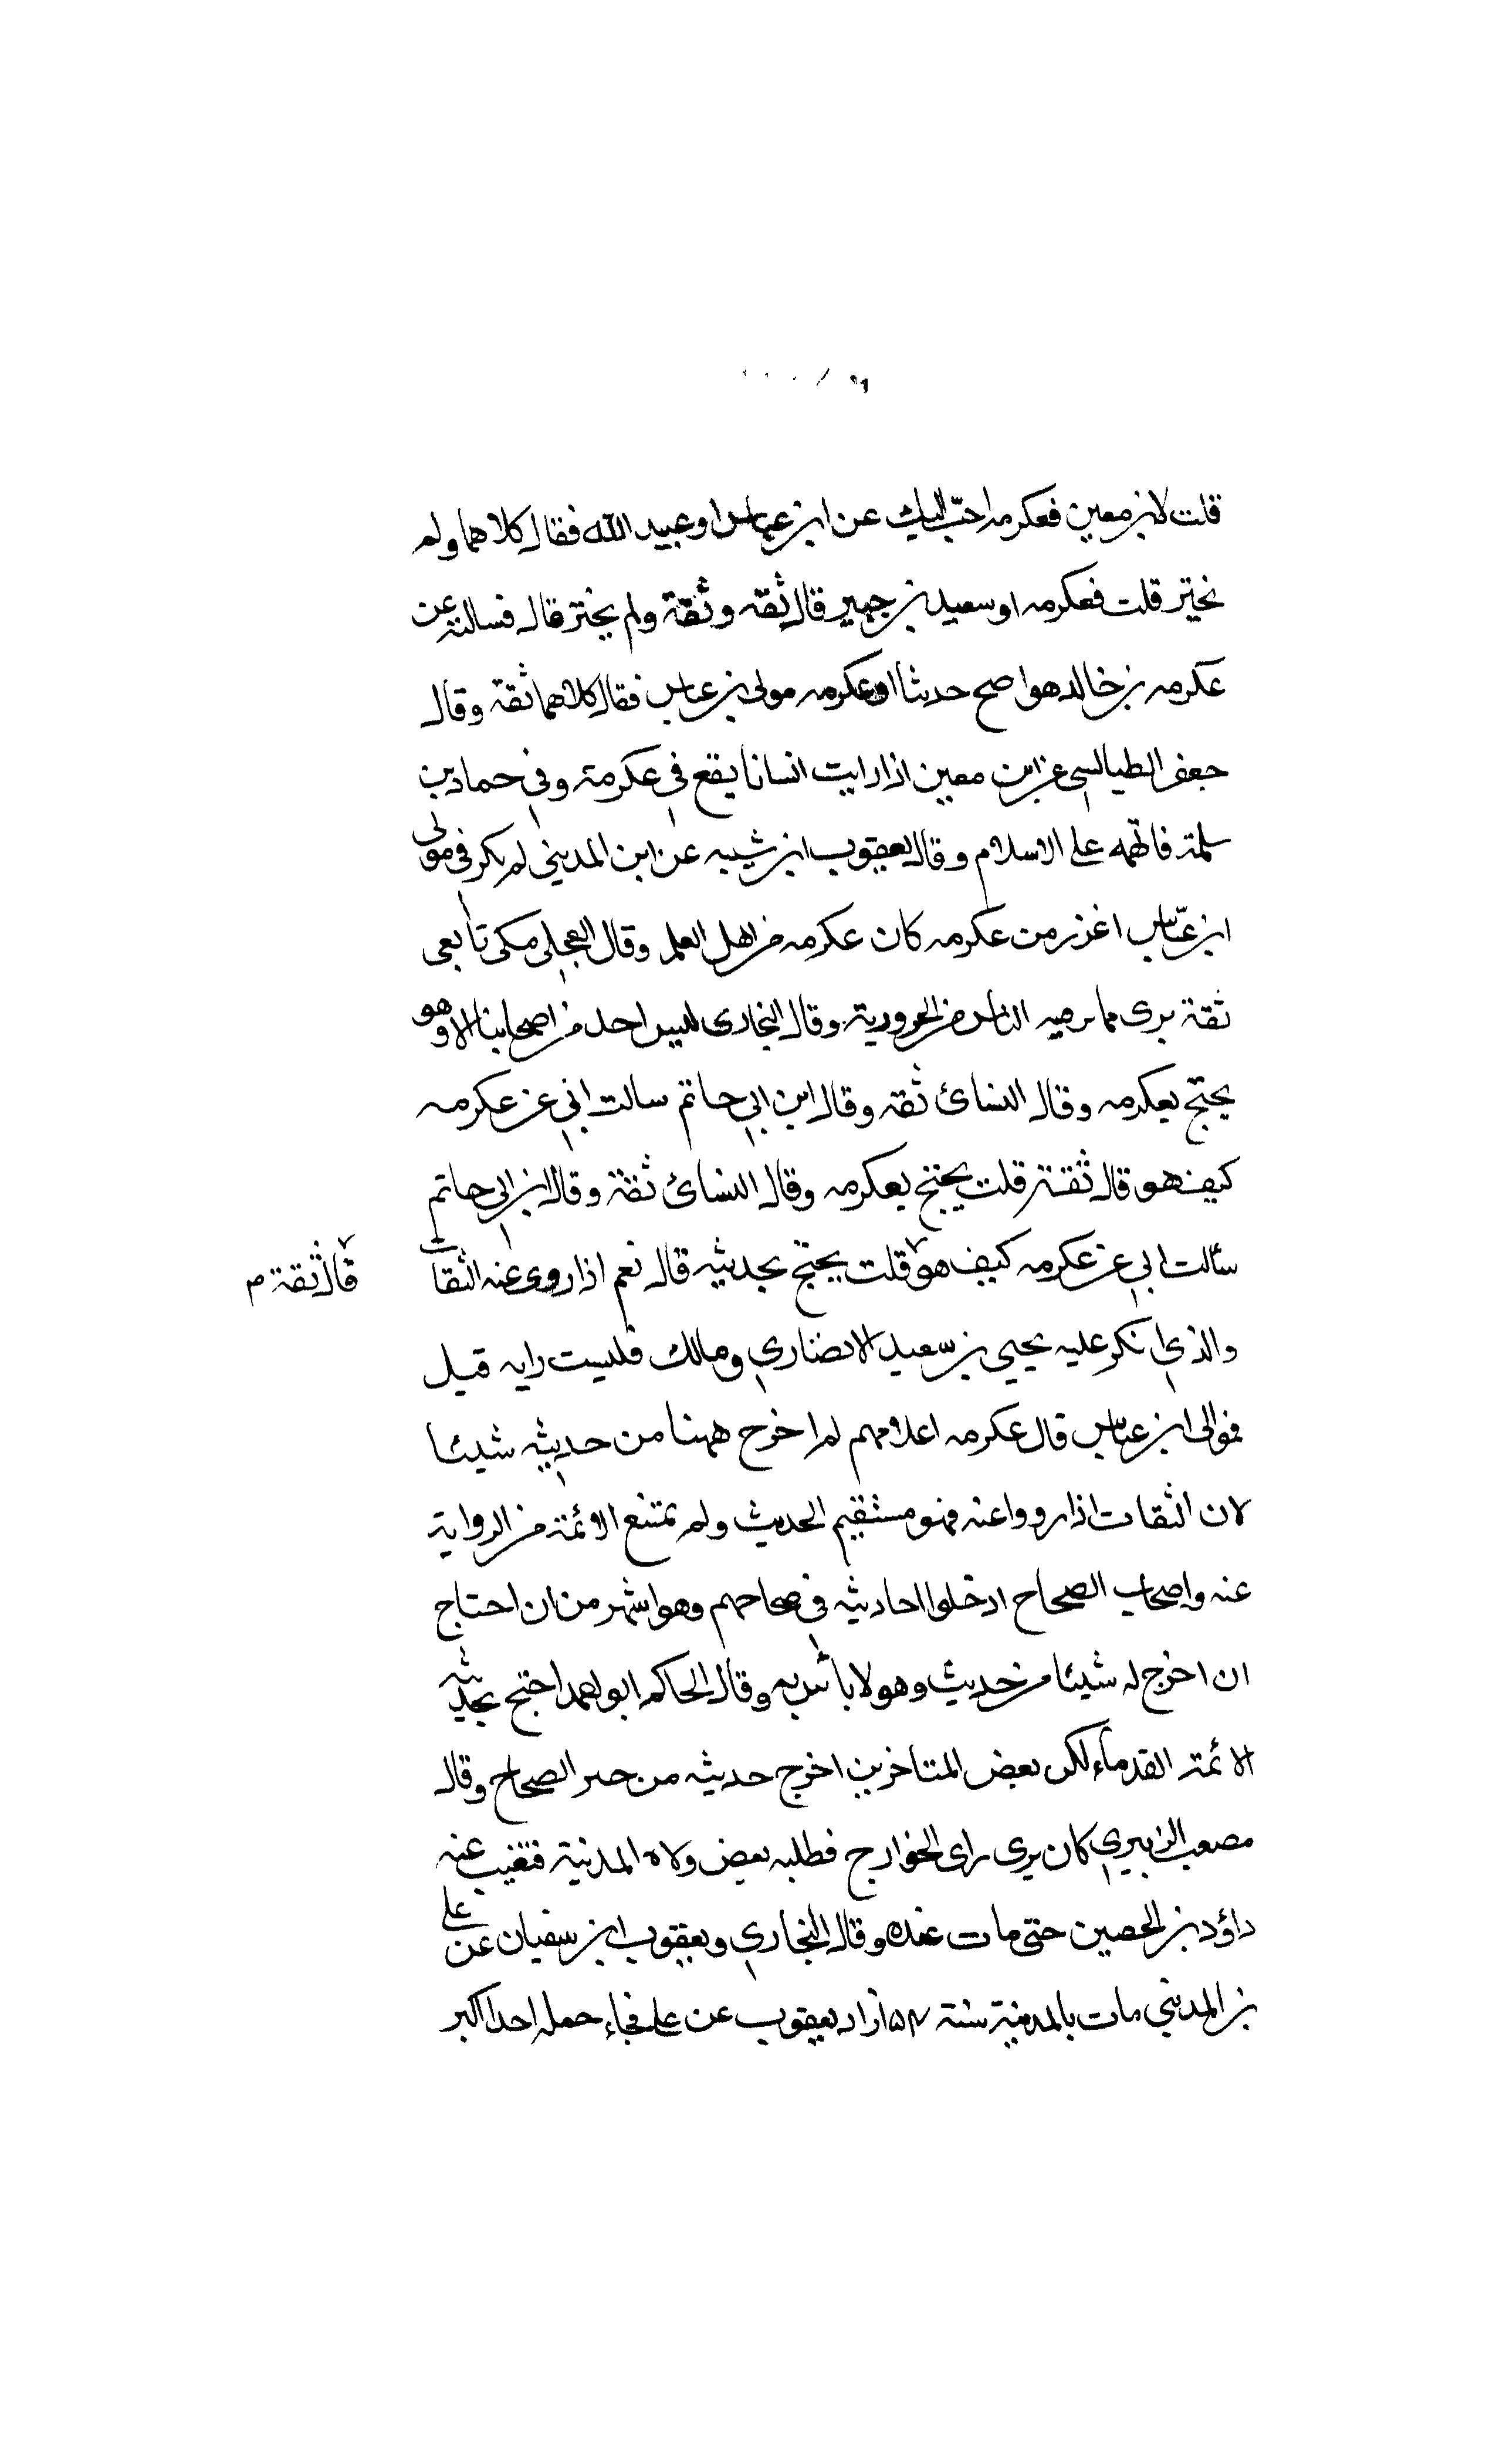 قلت لابن معين فعكرمه احبّ اليك عن ابن عباس او عبيد الله فقال كلاهما ولم
نختر قلت فعكرمه او سعيد بن جبير قال ثقه وثقة ولم يختر قال فسالته عن
عكرمه بن خالد هو اصح حديثا او عكرمه مولى بن عباس فقال كلاهما ثقة وقال
جعفر الطيالسي عن ابن معين اذا رايت انسانا يقع في عكرمة وفي حماد بن
سلمة فاتهمه على الاسلام وقال يعقوب ابن شيبه عن ابن المديني لم يكن في مولى
ابن عبّاس اغزر من عكرمه كان عكرمه من اهل العلم وقال العجلي مكي تابعي
ثقة برى مما يرميه الناس من الحرورية وقال البخارى ليس احد من اصحابنا الا وهو
يحتج بعكرمه وقال النسائ ثقه وقال ابن ابي حاتم سالت ابي عن عكرمه
كيف هو قال ثقة قلت يحتج بعكرمه وقال النسائ ثقة وقال ابن ابي حاتم
سألت ابي عن عكرمه كيف هو قلت يحتج بحديثه قال نعم اذا روى عنه الثقات
قال ثقة م
والذي انكر عليه يحيي بن سعيد الانصاري ومالك فلسبب رايه قيل
فموالى ابن عباس قال عكرمه اعلامهم لم اخرج ههنا من حديثه شيئا
لان الثقات اذا رووا عنه فهو مستقيم الحديث ولم يمتنع الائمة من الرواية
عنه واصحاب الصحاح ادخلوا احاديثه في صحاحهم وهو اشهر من ان احتاج
ان اخرج له شيئا من حديث وهو لا بأس به وقال الحاكم ابو احمد احتج بحديثه
الائمة القدماء لكن بعض المتاخرين اخرج حديثه من حيز الصحاح وقال
مصعب الزبيري كان يرى راى الخوارج فطلبه بعض ولاه المدينة فتغيب عنه
داؤد بن الحصين حتى مات عنده وقال البخاري ويعقوب ابن سفيان عن على
بن المديني مات بالمدينة سنة ١٥٤ زاد يعقوب عن على فجاء حمله احدا اكبر